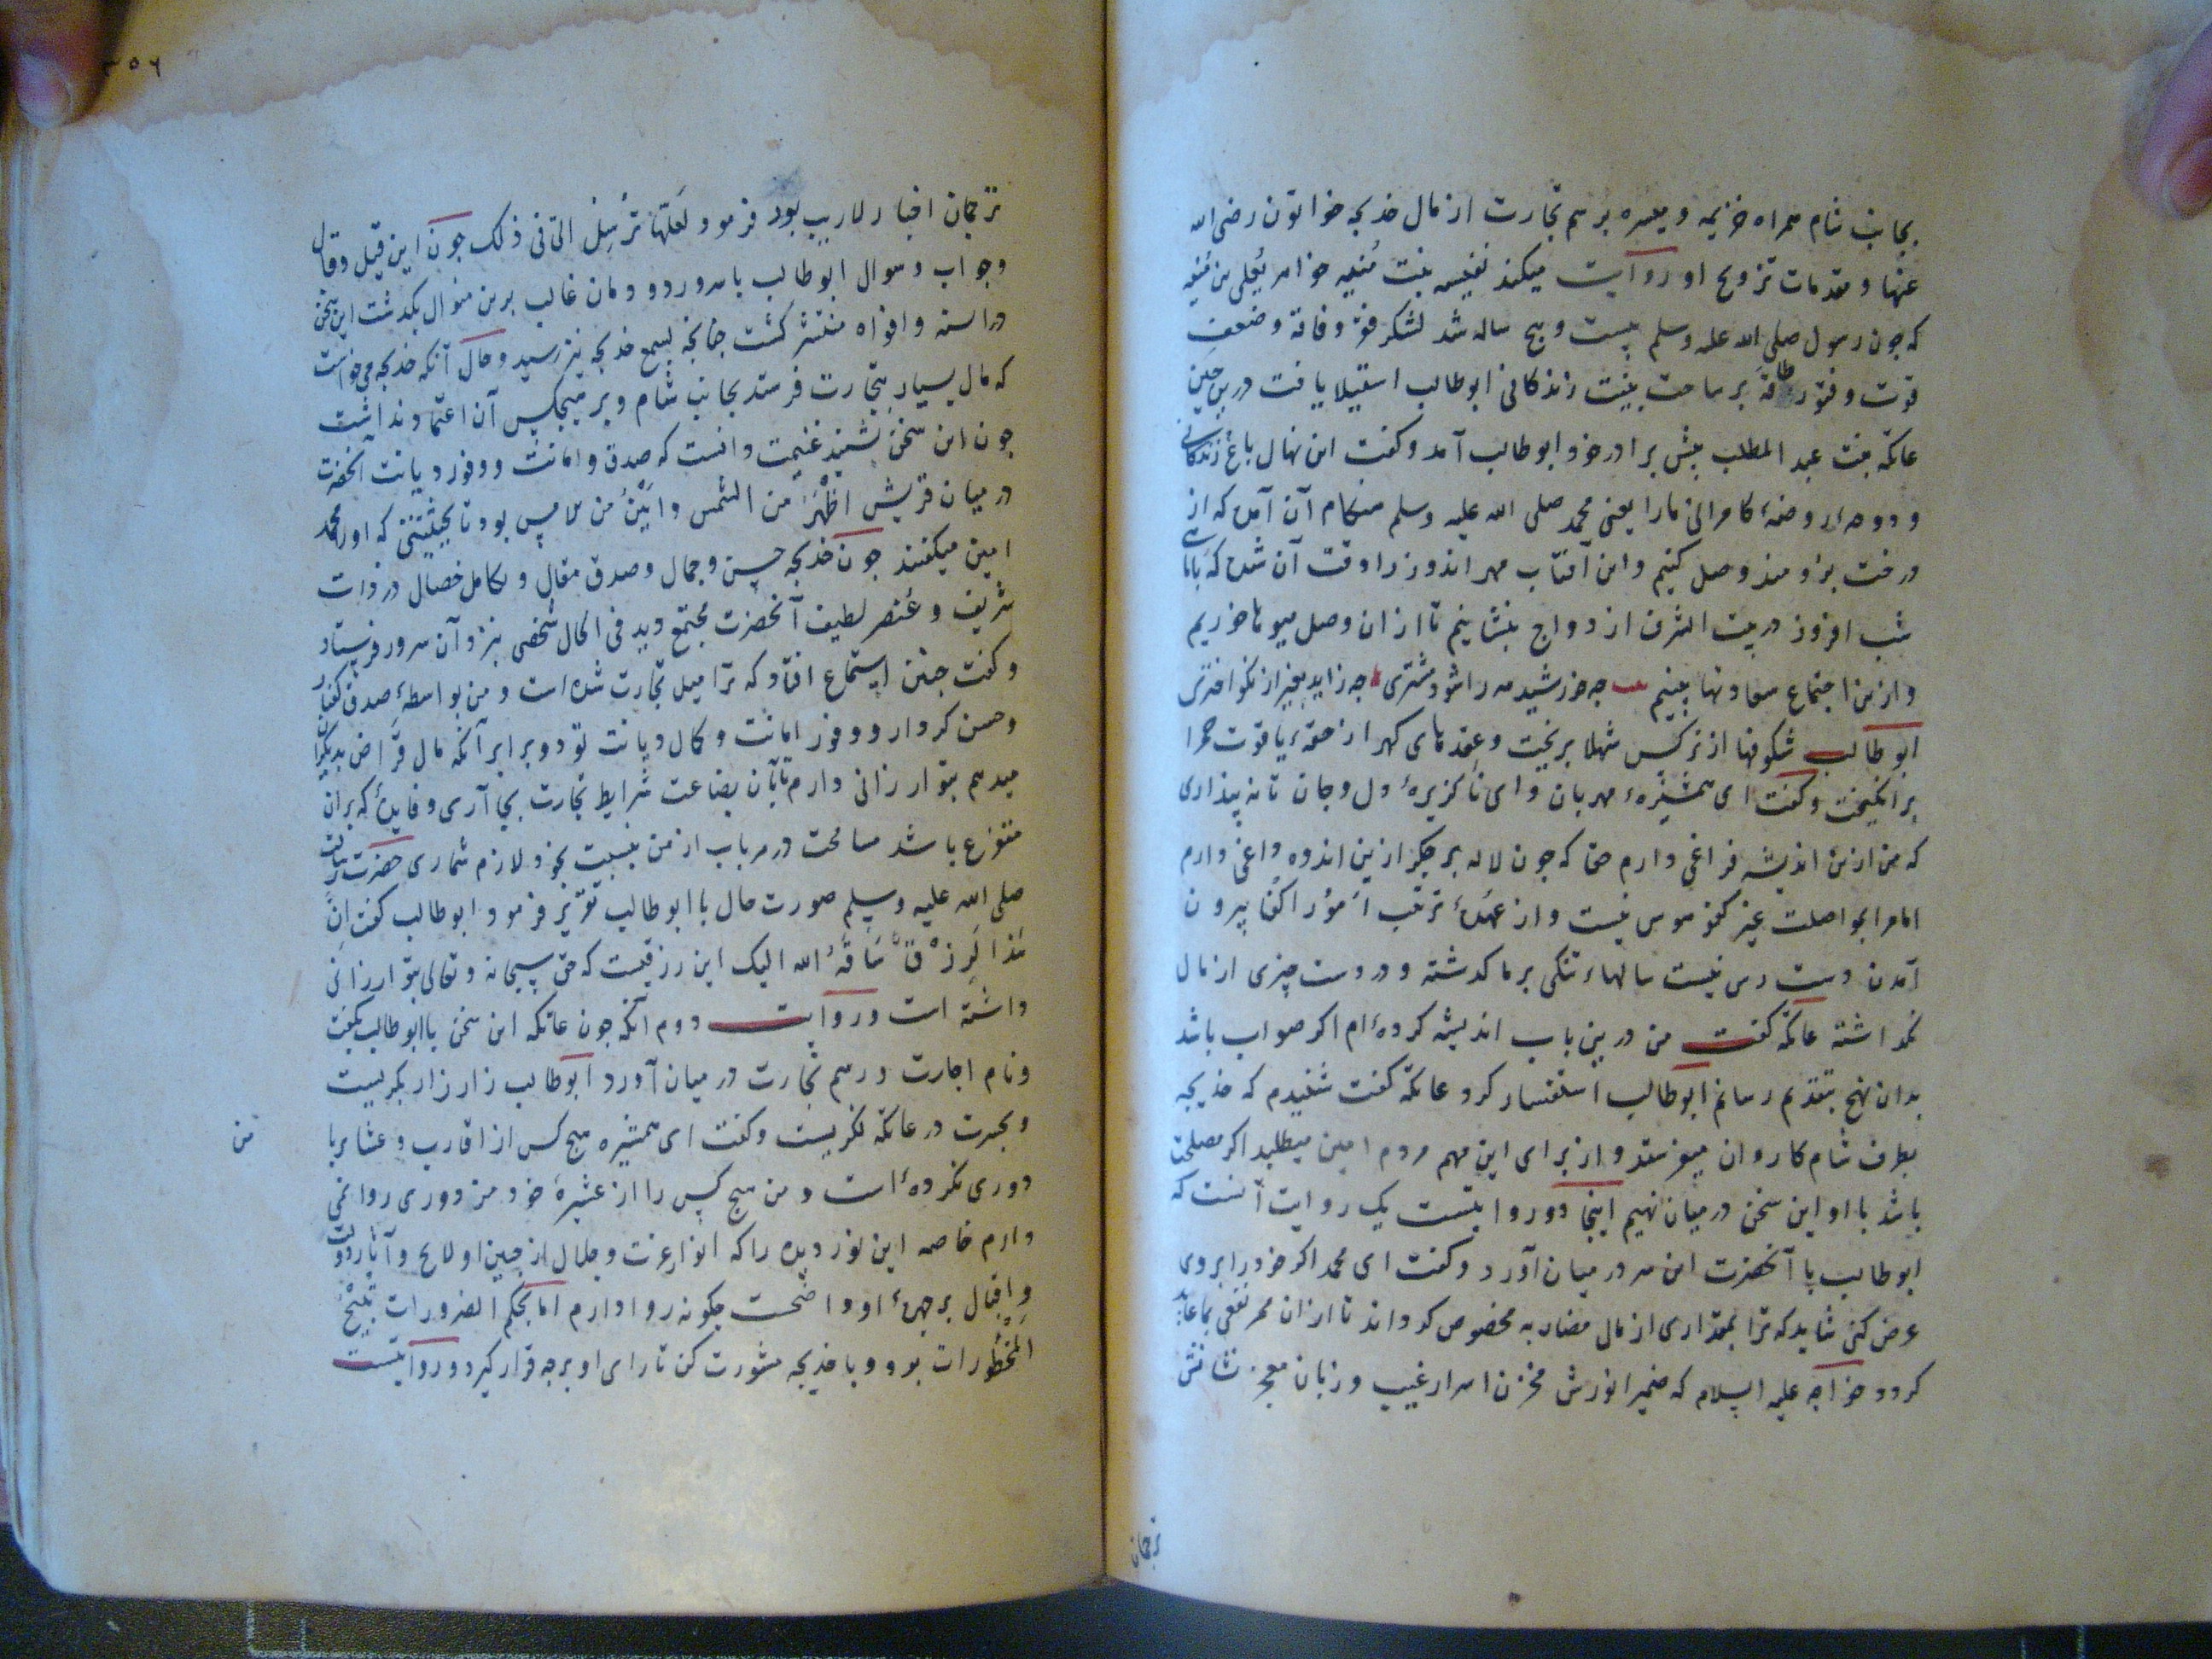 بجانب شام همراه خزیمه و میسره برسم تجارت از مال خدیجه خواتون رضی الله
عنها و مقدمات تزویج او روایت میکند نفیسه بنت مُنیه خواهر یُعلی بن مُنیه
که چون رسول صلی الله علیه وسلم بیست و پنج ساله شد لشکر فقر و فاقة و ضعف
قوت و فتور طاقة بر ساحت بنیت زندکانی ابوطالب استیلا یافت درین حین
عاتکه بنت عبد المطلب پیش برادر خود ابوطالب آمد و کفت این نهال باغ زندکانی
و دوحهٔ روضهٔ کامرانی مارا یعنی محمد صلی الله علیه وسلم هنکام آن آمد که از
درخت برومند وصل کنیم و این آفتاب مهر اندوز را وقت آن شد که با ماه
شب افروز در بیت الشرف ازدواج بنشانیم تا از آن وصل میوها خوریم
و ازین اجتماع سعادتها بینیم چه خورشید مه را شود مشتری چه زاید بغیر از نکو اختری
ابوطالب شکوفها از نرکس شهلا بریخت و عقدهای کهر از حقهٔ یاقوت حمرا
برانکیخت و کفت ای همشیرهٔ مهربان و ای ناکزیرهٔ دل و جان تا نه پنداری
که من ازین اندیشه فراغی دارم حقا که چون لاله بر جکر ازین اندوه داغی دارم
اما مرا بواصلت غیر کفو هوس نیست و از عهدهٔ ترتیب اُمور اکفا بیرون
آمدن دست رس نیست سالهاء تنکی بر ما کدشته و در دست چیزی از مال
نکداشته عاتکه کفت من درین باب اندیشه کرده‌ام اکر صواب باشد
بدان نهج بتقدیم رسانم ابوطالب استفسار کرد عاتکه کفت شنیدم که خدیجه
بطرف شام کاروان میفرستد و از برای این مهم مردم امین میطلبد اکر مصلحت
باشد با او این سخن در میان نهیم اینجا دو روایتست یک روایت آنست که
ابوطالب با آنحضرت این سر در میان آورد و کفت ای محمد اکر خود را بروی
عرض کنی شاید که ترا بمقداری از مال مضاربه مخصوص کرداند تا از آن ممر نفعی بما عاید
کردد خواجه علیه السلام که ضمیر انورش مخزن اسرار غیب و زبان معجز نشانش
ترجمان
٣٥٦
ترجمان اخبار لاریب بود فرمود لَعَلّها تُرسِلُ الیّ فی ذلک چون این قیل و قال
و جواب و سوال ابوطالب با سرور دودمان غالب برین منوال بکدشت این سخن
در السنه و افواه منتشر کشت چنانچه بسمع خدیجه نیز رسید و حال آنکه خدیجه می‌خواست
که مال بسیار بتجارت فرستد بجانب شام و بر هیچکس آن اعتماد نداشت
چون این سخن شنید غنیمت دانست که صدق و امانت و وفور دیانت آنحضرت
در میان قریش اَظْهَرُ من الشمس و اَبْیَنُ من الامس بود تا بحیثیتی که او را محمد
امین میکفتند چون خدیجه حسن و جمال و صدق مقال و تکامل خصال در ذات
شریف و عنصر لطیف آنحضرت مجتمع دید فی الحال شخصی نزد آن سرور فرستاد
و کفت چنین استماع افتاد که ترا میل تجارت شده است و من بواسطهٔ صدق کفتار
و حسن کردار و وفور امانت و کمال دیانت تو دو برابر آنکه مال قراض بدیکران
میدهم بتو ارزانی دارم تا بآن بضاعت شرایط تجارت بجای آری و فایدهٔ که بران
متفرع باشد مسامحت در هر باب از من نسبت بخود لازم شماری حضرت رسالت
صلی الله علیه وسلم صورت حال با ابوطالب تقریر فرمود ابوطالب کفت اِنَّ
هذا لَرِزْقٌ سَاقَهُ الله الیک این رزقیست که حق سبحانه و تعالی بتو ارزانی
داشته است و روایت دوم آنکه چون عاتکه این سخن با ابوطالب بکفت
و نام اجارت و رسم تجارت در میان آورد ابوطالب زار زار بکریست
و بحیرت در عاتکه نکریست و کفت ای همشیره هیچ کس از اقارب و عشایر با
من
دوری نکرده‌است و من هیچ کس را از عشیرهٔ خود من دوری روا نمی
دارم خاصه این نور دیده را که انوار عزت و جلال از جبین او لایح و آثار دولت
و اقبال بر چهرهٔ او واضحست چکونه روا دارم اما بحکم الضرورات تبیح
المحظورات برو و با خدیجه مشورت کن تا رای او بر چه قرار کیرد و روایتست